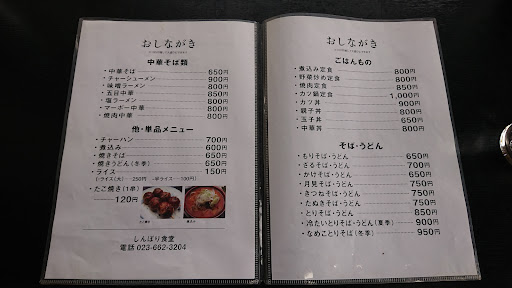 おしながき
中華そば類
・中華そば 650円
・チャーシューメン 900円
・味噌ラーメン 800円
・五目中華 850円
・塩ラーメン 800円
・マーボー中華 800円
・焼肉中華 800円
他・単品メニュー
・チャーハン 700円
・煮込み 600円
・焼きそば 650円
・焼きうどん(冬季) 650円
・ライス 150円
(ライス(大)…250円 ・半ライス…100円)
・たこ焼き(1串)
120円
しんぼり食堂
電話 023-662-3204
おしながき
ごはんもの
・煮込み定食 800円
・野菜炒め定食 800円
・焼肉定食 850円
・カツ鍋定食 1,000円
・カツ丼 900円
・親子丼 800円
・玉子丼 650円
・中華丼 800円
そば・うどん
・もりそば・うどん 650円
・ざるそば・うどん 700円
・かけそば・うどん 650円
・月見そば・うどん 750円
・きつねそば・うどん 750円
・たぬきそば・うどん 750円
・とりそば・うどん 850円
・冷たいとりそば・うどん(夏季) 900円
・なめことりそば(冬季) 950円